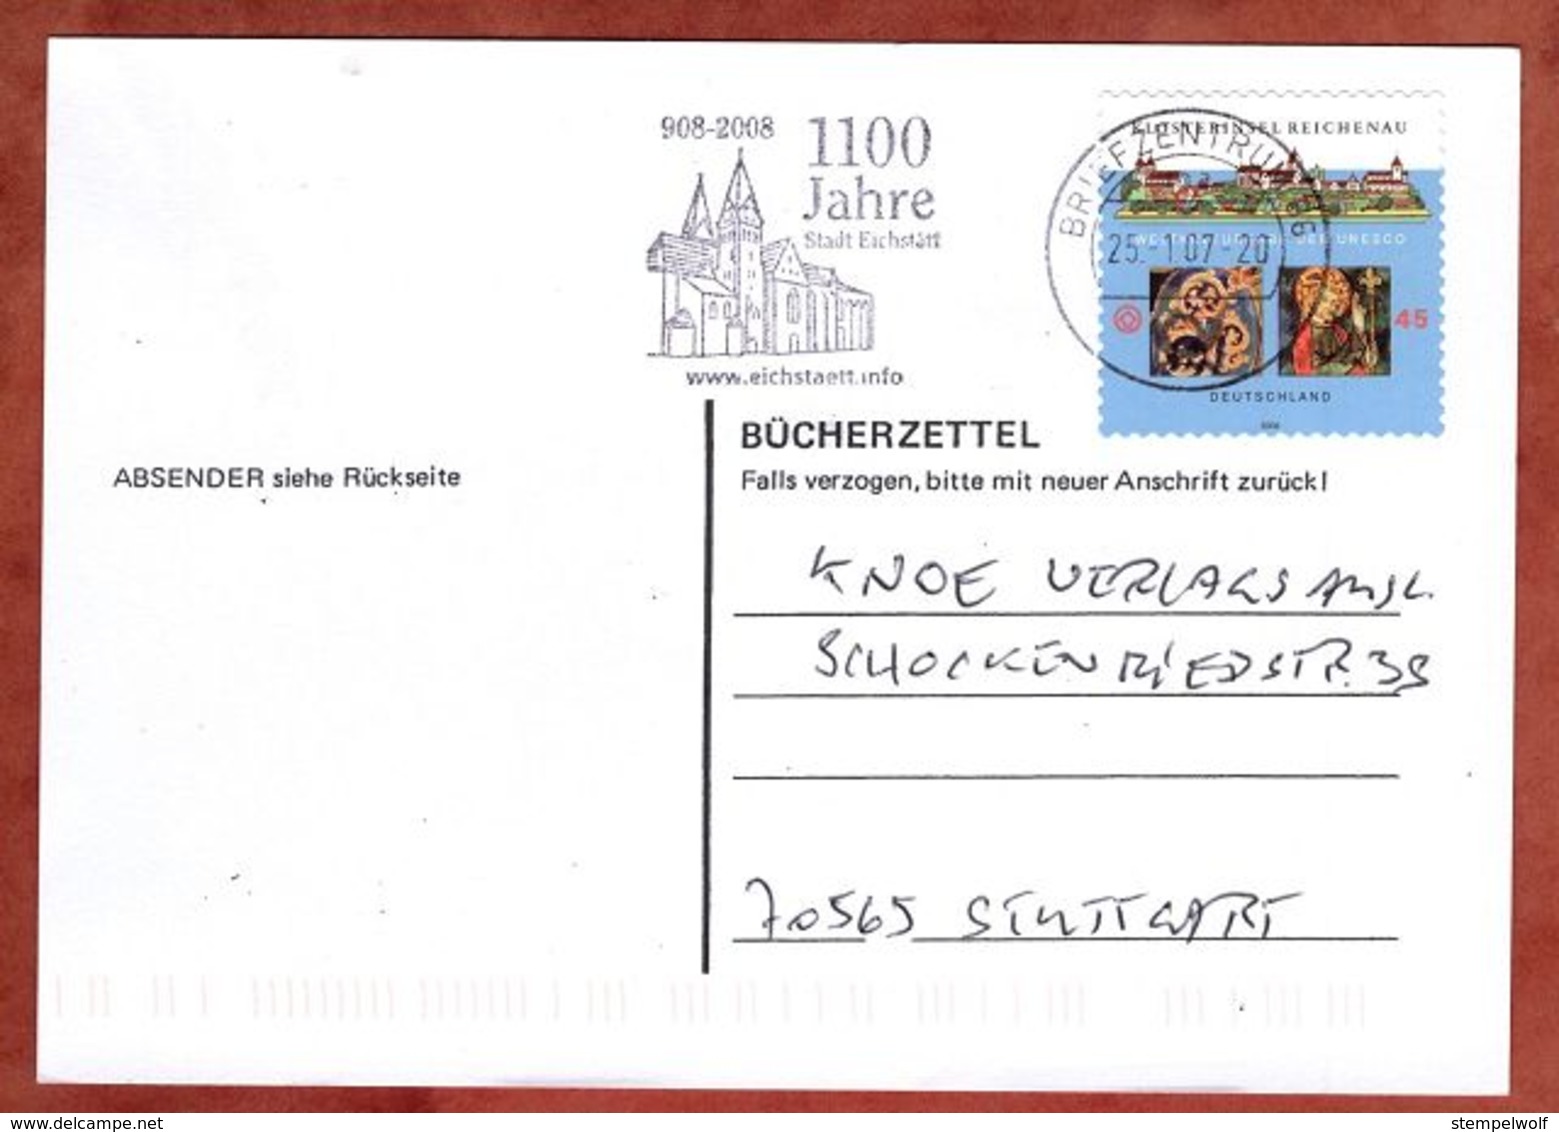 908-2008
1100
Jahre
Stadt Eichstätt
www.eichstaett.info
KLOSTERINSEL REICHENAU
BRIEFZENTRUM 86
25.-1.07-20
UNESCO
45
DEUTSCHLAND
BÜCHERZETTEL
Falls verzogen, bitte mit neuer Anschrift zurück!
ABSENDER siehe Rückseite
KNOE VERLAGSAUSL.
SCHOCKENRIEDSTR. 39
70565 STUTTGART
delcampe.net
stempelwolf